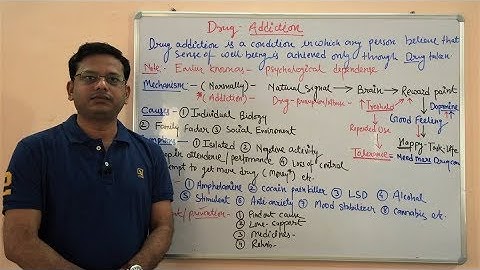 Drug Addiction
Drug addiction is a condition in which any person believe that
sense of well being is achieved only through Drug taken
Note:- Earlier known as - psychological dependence
Mechanism:- (Normally) Natural Signal → Brain → Reward point
* (Addiction) Drug → Threshold Dopamine
Causes- ① Individual Biology Good Feeling
② Family Factor ③ Social Environment Repeated Use
① Isolated ② Negative activity Happy Task-life
attendence / performance ④ Loss of control Tolerance = Need More Drug
to get more drug (Money) etc.
① Amphetamine ② Cocain painkiller ③ LSD ④ Alcohol
⑤ Stimulent ⑥ Anti anxiety ⑦ Mood stabilizer ⑧ Cannabis etc.
① Find out cause
② Love-support
③ Medicines-
④ Rehab-